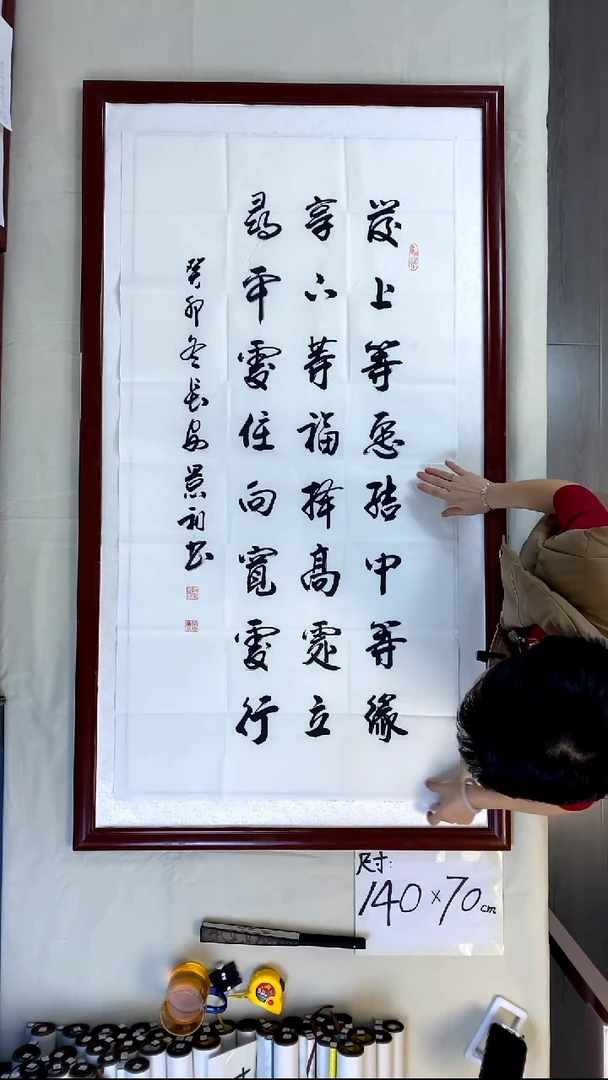 發上等愿結中等緣
享下等福擇高處立
尋平處住向寬處行
癸卯冬長安景初书
尺寸:
140×70cm